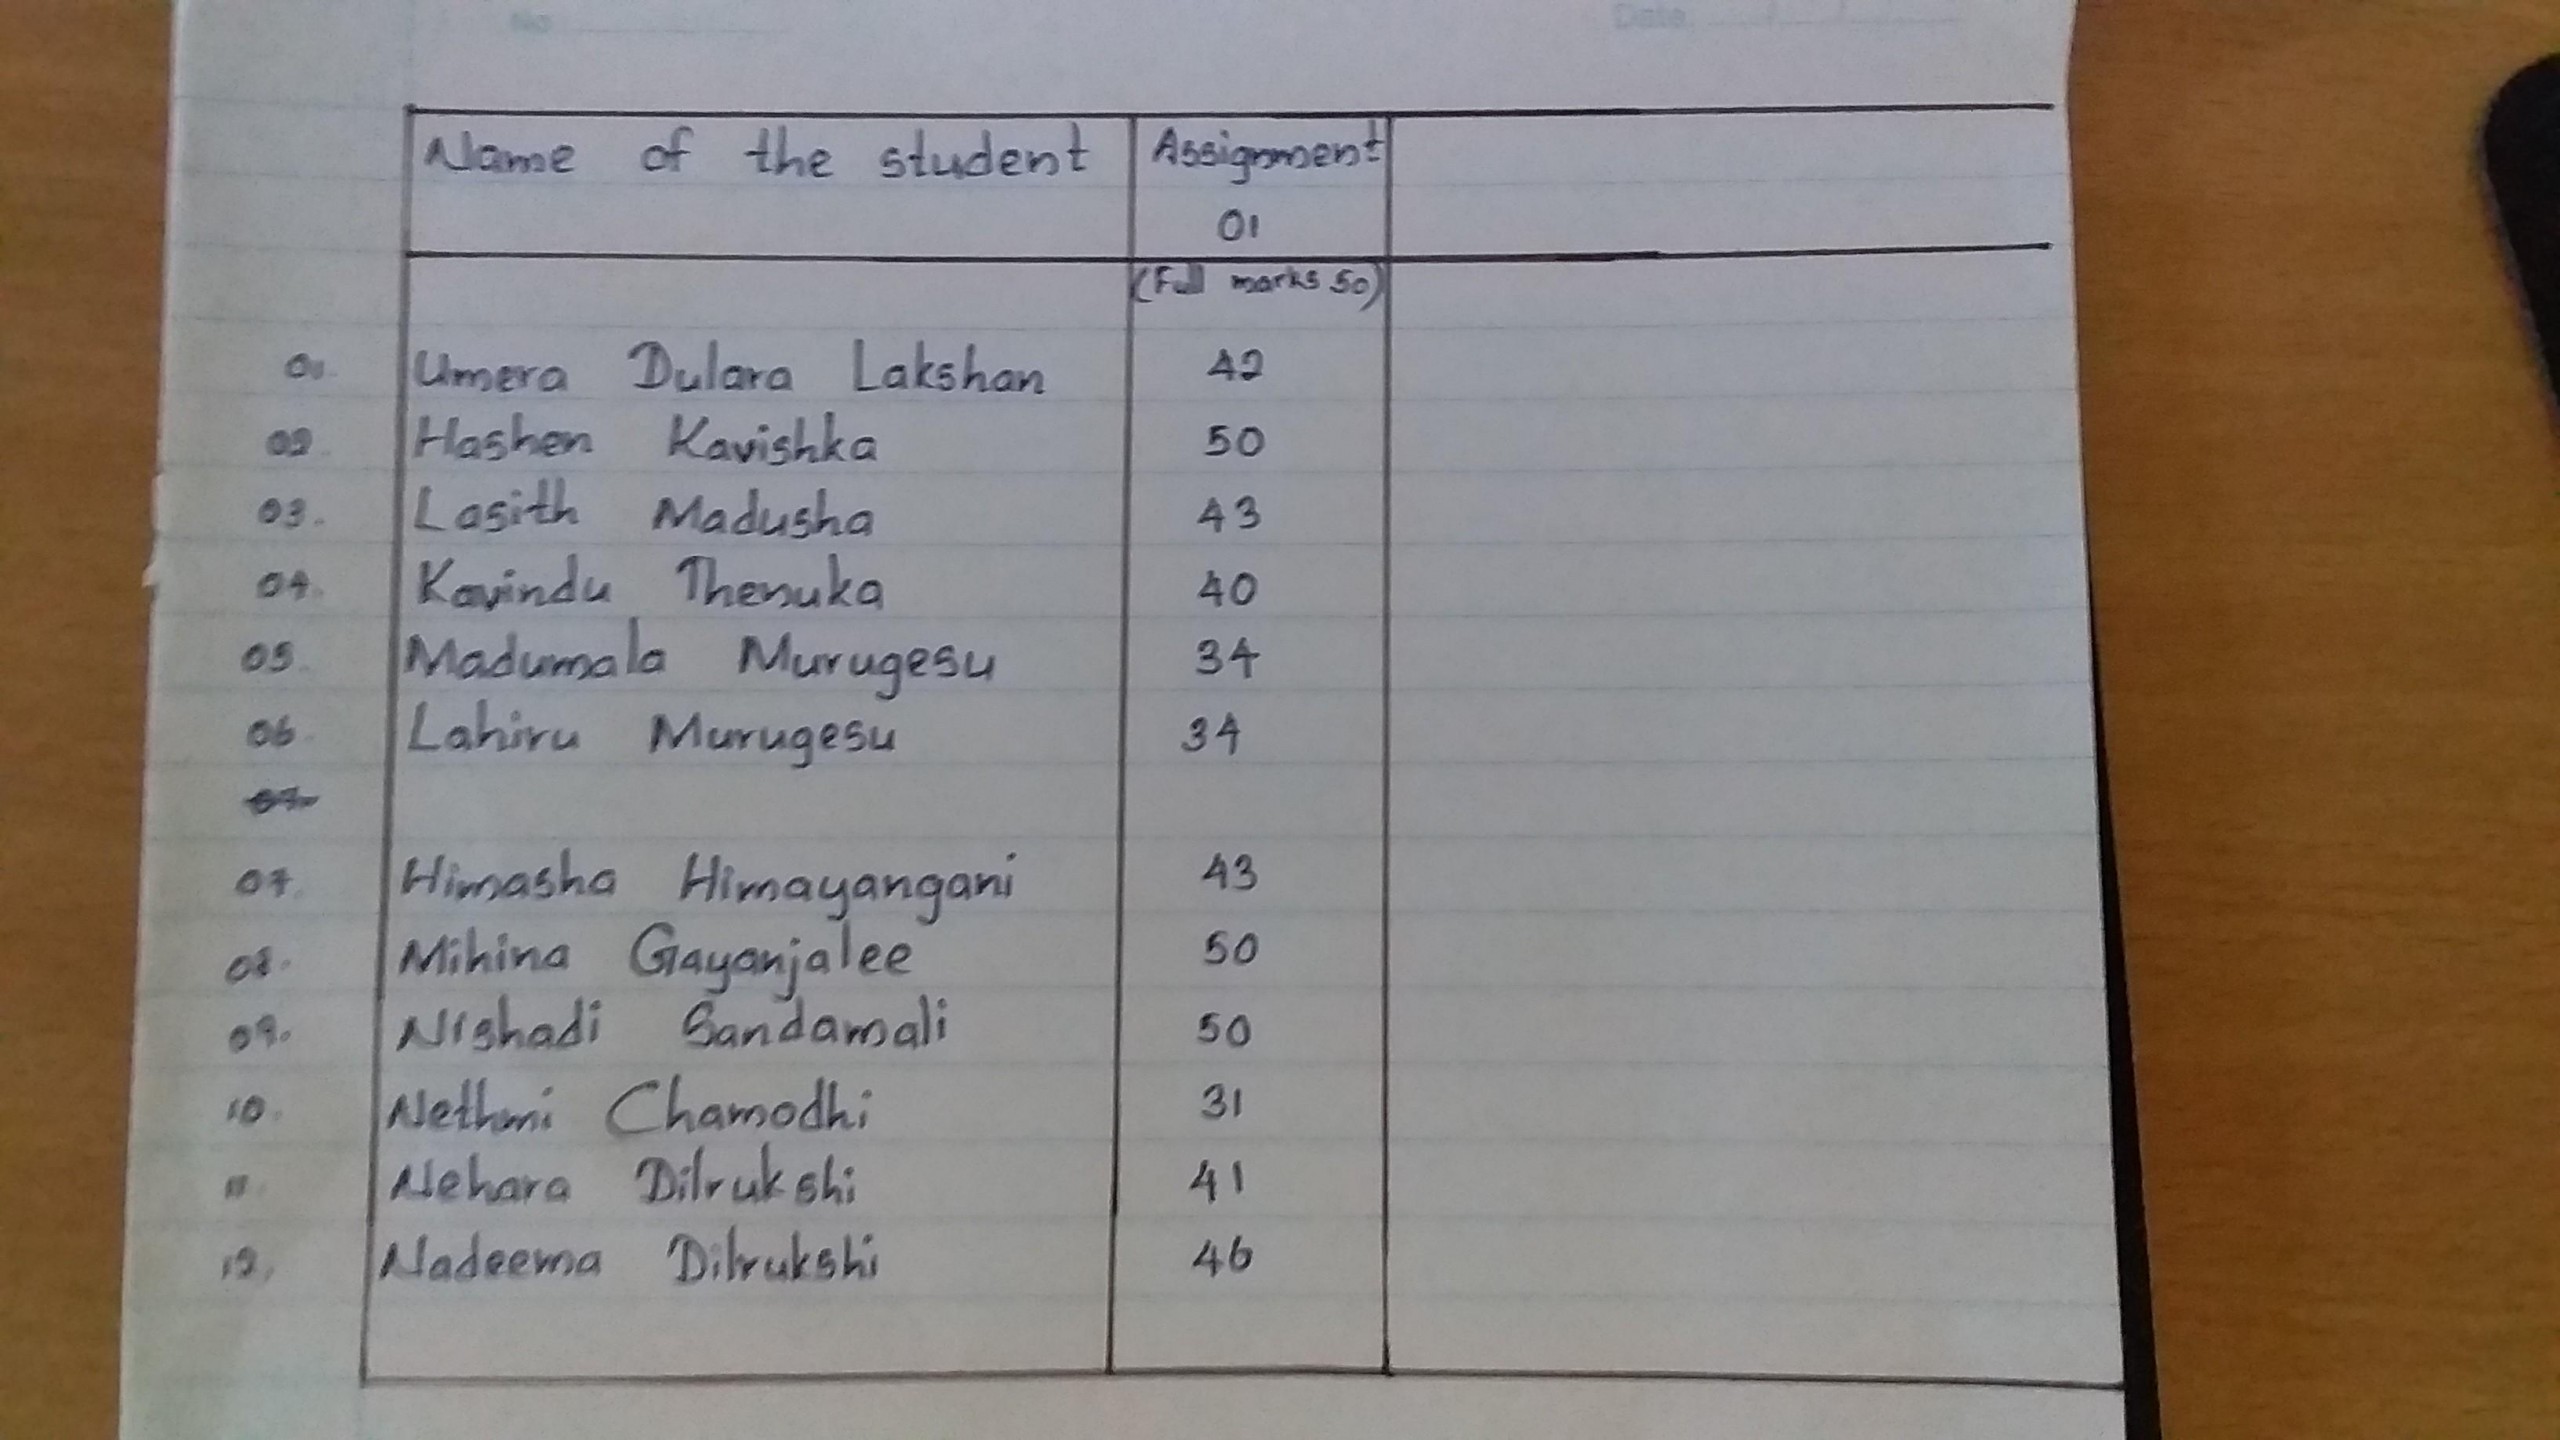 No
Date
Name of the student Assignment
01
(Full marks 50)
01. Umera Dulara Lakshan 42
02. Hashen Kavishka 50
03. Lasith Madusha 43
04. Kavindu Thenuka 40
05. Madumala Murugesu 34
06. Lahiru Murugesu 34
07.
07. Himasha Himayangani 43
08. Mihina Gayanjalee 50
09. Nishadi Sandamali 50
10. Nethmi Chamodhi 31
11. Nehara Dilrukshi 41
12. Nadeema Dilrukshi 46